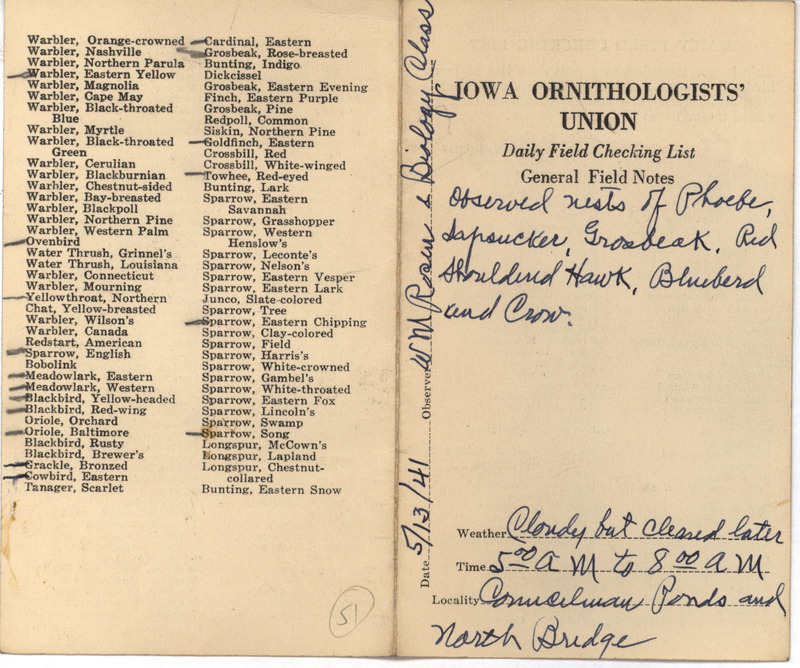 Warbler, Orange-crowned
Warbler, Nashville
Warbler, Northern Parula
Warbler, Eastern Yellow
Warbler, Magnolia
Warbler, Cape May
Warbler, Black-throated
Blue
Warbler, Myrtle
Warbler, Black-throated
Green
Warbler, Cerulian
Warbler, Blackburnian
Warbler, Chestnut-sided
Warbler, Bay-breasted
Warbler, Blackpoll
Warbler, Northern Pine
Warbler, Western Palm
Ovenbird
Water Thrush, Grinnel's
Water Thrush, Louisiana
Warbler, Connecticut
Warbler, Mourning
Yellowthroat, Northern
Chat, Yellow-breasted
Warbler, Wilson's
Warbler, Canada
Redstart, American
Sparrow, English
Bobolink
Meadowlark, Eastern
Meadowlark, Western
Blackbird, Yellow-headed
Blackbird, Red-wing
Oriole, Orchard
Oriole, Baltimore
Blackbird, Rusty
Blackbird, Brewer's
Grackle, Bronzed
Cowbird, Eastern
Tanager, Scarlet
Cardinal, Eastern
Grosbeak, Rose-breasted
Bunting, Indigo
Dickcissel
Grosbeak, Eastern Evening
Finch, Eastern Purple
Grosbeak, Pine
Redpoll, Common
Siskin, Northern Pine
Goldfinch, Eastern
Crossbill, Red
Crossbill, White-winged
Towhee, Red-eyed
Bunting, Lark
Sparrow, Eastern
Savannah
Sparrow, Grasshopper
Sparrow, Western
Henslow's
Sparrow, Leconte's
Sparrow, Nelson's
Sparrow, Eastern Vesper
Sparrow, Eastern Lark
Junco, Slate-colored
Sparrow, Tree
Sparrow, Eastern Chipping
Sparrow, Clay-colored
Sparrow, Field
Sparrow, Harris's
Sparrow, White-crowned
Sparrow, Gambel's
Sparrow, White-throated
Sparrow, Eastern Fox
Sparrow, Lincoln's
Sparrow, Swamp
Sparrow, Song
Longspur, McCown's
Longspur, Lapland
Longspur, Chestnut-
collared
Bunting, Eastern Snow
51
Date 5/13/41 Observer W M Rosen & Biology Class
IOWA ORNITHOLOGISTS'
UNION
Daily Field Checking List
General Field Notes
Observed nests of Phoebe,
Sapsucker, Grosbeak, Red
Shouldered Hawk, Bluebird
and Crow.
Weather Cloudy but cleared later
Time 5:00 A M to 8:00 A M
Locality Councilman Ponds and
North Bridge